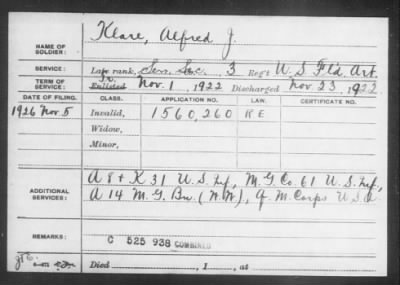 NAME OF SOLDIER: Klare, Alfred J.
SERVICE: Late rank, Serv. Svc. 3 Reg't U.S. Fl'd Art.
TERM OF SERVICE: Enlisted Nov. 1, 1922 Discharged Nov 23, 1922
DATE OF FILING. CLASS. APPLICATION NO. LAW. CERTIFICATE NO.
1926 Nov. 5 Invalid, 1560,260 RE
Widow,
Minor,
ADDITIONAL SERVICES: A 8 + K 31 U.S. Inf, M.G. Co. 61 U.S. Inf,
A 14 M.G. Bn (N.A.), Q.M. Corps U.S.A.
REMARKS: C 525 938 COMBINED
Died , 1 , at